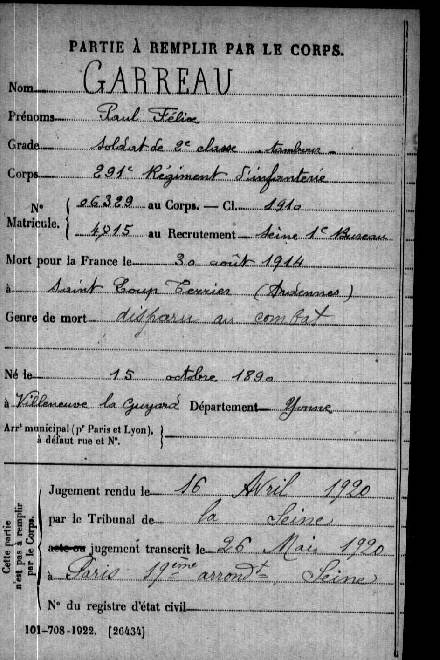 PARTIE À REMPLIR PAR LE CORPS.
Nom GARREAU
Prénoms Paul Félix
Grade Soldat de 2e classe - tambour -
Corps 291e Régiment d'infanterie
N° Matricule. { 06329 au Corps. — Cl. 1910
4915 au Recrutement Seine 1e Bureau
Mort pour la France le 30 août 1914
à Saint Loup Terrier (Ardennes)
Genre de mort disparu au combat
Né le 15 octobre 1890
à Villeneuve la Guyard Département Yonne
Arrt municipal (pr Paris et Lyon), à défaut rue et N°. }
Cette partie n'est pas à remplir par le Corps.
Jugement rendu le 16 Avril 1920
par le Tribunal de la Seine
acte ou jugement transcrit le 26 Mai 1920
à Paris 19ème arrondt, Seine
N° du registre d'état civil
101-708-1022. [26434]